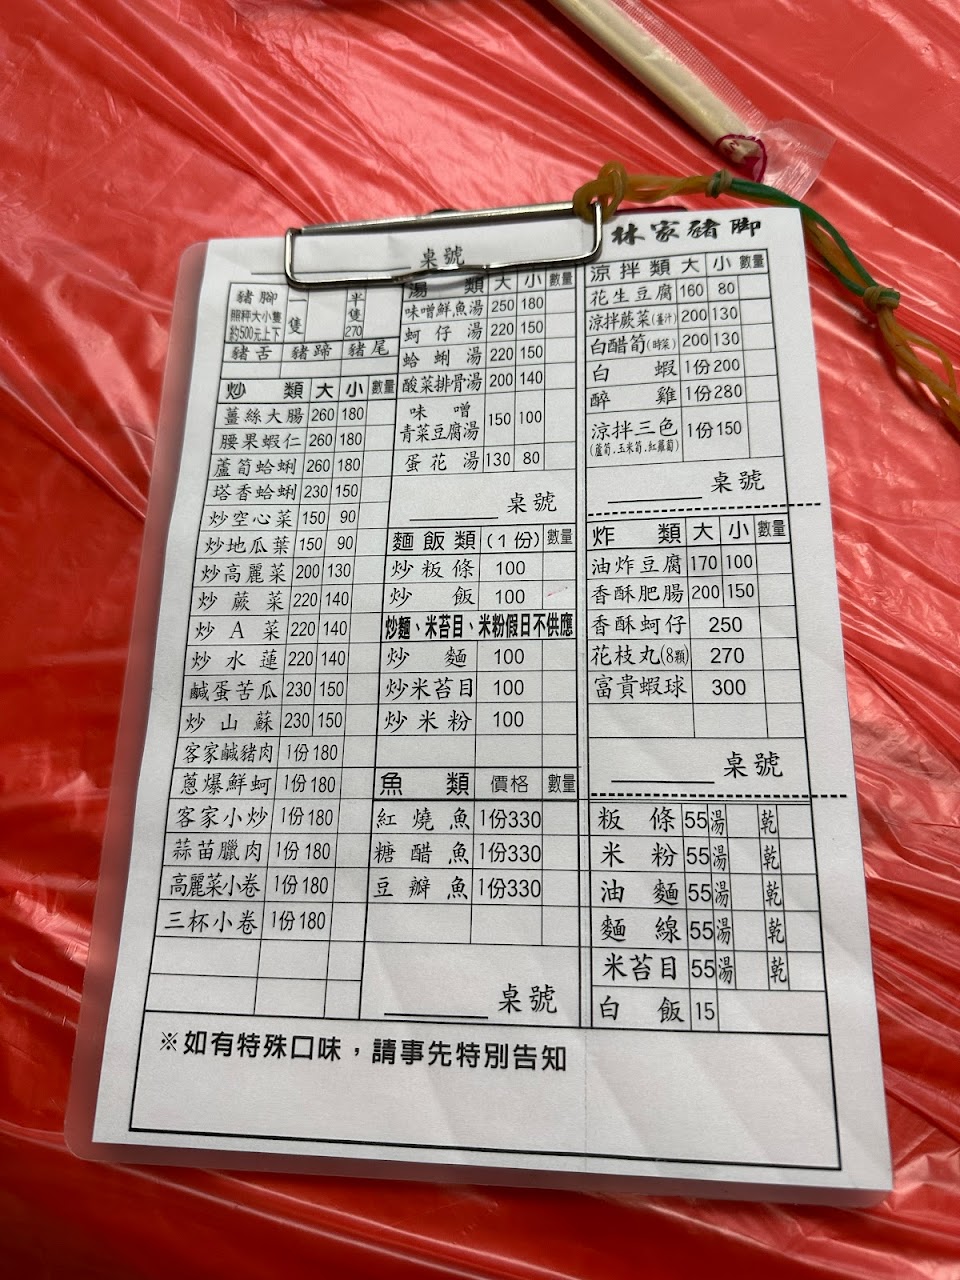 林家豬腳
桌號
豬腳 一隻 半隻 270
照秤大小隻
約500元上下
豬舌 豬蹄 豬尾
炒類 大 小 數量
薑絲大腸 260 180
腰果蝦仁 260 180
蘆筍蛤蜊 260 180
塔香蛤蜊 230 150
炒空心菜 150 90
炒地瓜葉 150 90
炒高麗菜 200 130
炒蕨菜 220 140
炒A菜 220 140
炒水蓮 220 140
鹹蛋苦瓜 230 150
炒山蘇 230 150
客家鹹豬肉 1份180
蔥爆鮮蚵 1份180
客家小炒 1份180
蒜苗臘肉 1份180
高麗菜小卷 1份180
三杯小卷 1份180
湯類 大 小 數量
味噌鮮魚湯 250 180
蚵仔湯 220 150
蛤蜊湯 220 150
酸菜排骨湯 200 140
味噌
青菜豆腐湯 150 100
蛋花湯 130 80
桌號
麵飯類 (1份) 數量
炒粄條 100
炒飯 100
炒麵、米苔目、米粉假日不供應
炒麵 100
炒米苔目 100
炒米粉 100
魚類 價格 數量
紅燒魚 1份330
糖醋魚 1份330
豆瓣魚 1份330
桌號
涼拌類 大 小 數量
花生豆腐 160 80
涼拌蕨菜(薑汁) 200 130
白醋筍(時菜) 200 130
白蝦 1份200
醉雞 1份280
涼拌三色 1份150
(蘆筍.玉米筍.紅蘿蔔)
桌號
炸類 大 小 數量
油炸豆腐 170 100
香酥肥腸 200 150
香酥蚵仔 250
花枝丸(8顆) 270
富貴蝦球 300
桌號
粄條 55 湯 乾
米粉 55 湯 乾
油麵 55 湯 乾
麵線 55 湯 乾
米苔目 55 湯 乾
白飯 15
※如有特殊口味，請事先特別告知